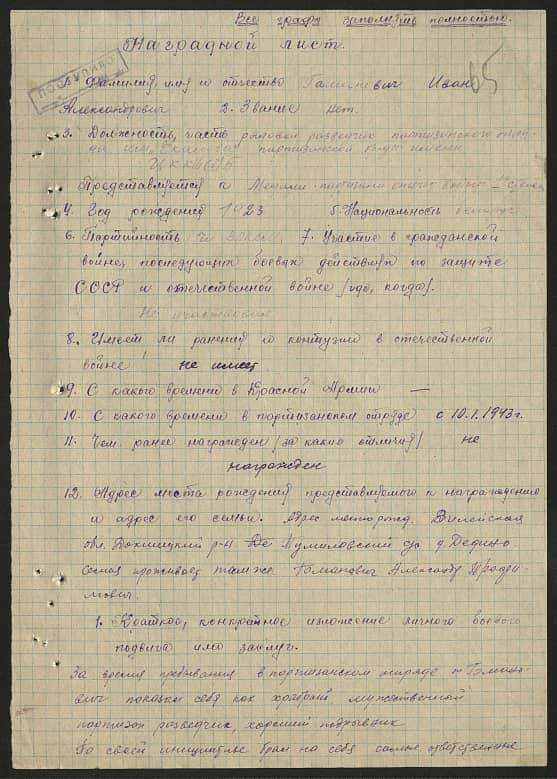 Все графы заполнять полностью.
Наградной лист.
ПОСТУПИЛО
Фамилия, имя и отчество Романович Иван
Александрович 2. Звание нет.
3. Должность, часть рядовой разведчик партизанского
партизанской
Представляется к Медали партизану степени
4. Год рождения 1923 5. Национальность белорус
6. Партийность чл. ВЛКСМ 7. Участие в гражданской
войне, последующих боевых действиях по защите
СССР и отечественной войне (где, когда).
Не участвовал
8. Имеет ли ранения и контузии в отечественной
войне не имеет
9. С какого времени в Красной Армии —
10. С какого времени в партизанском отряде с 10.1.1943г.
11. Чем ранее награжден (за какие отличия) не
награжден
12. Адрес места рождения представляемого к награждению
и адрес его семьи. Адрес места рожд. Вилейская
обл. Докшицкий р-н д. Дедино
Семья проживает там же Романович Александр
мович.
1. Краткое, конкретное изложение личного боевого
подвига или заслуг.
За время пребывания в партизанском отряде т. Романо-
вич показал себя как храбрый, мужественный
партизан разведчик, хороший подрывник
По своей инициативе брал на себя самые ответственные